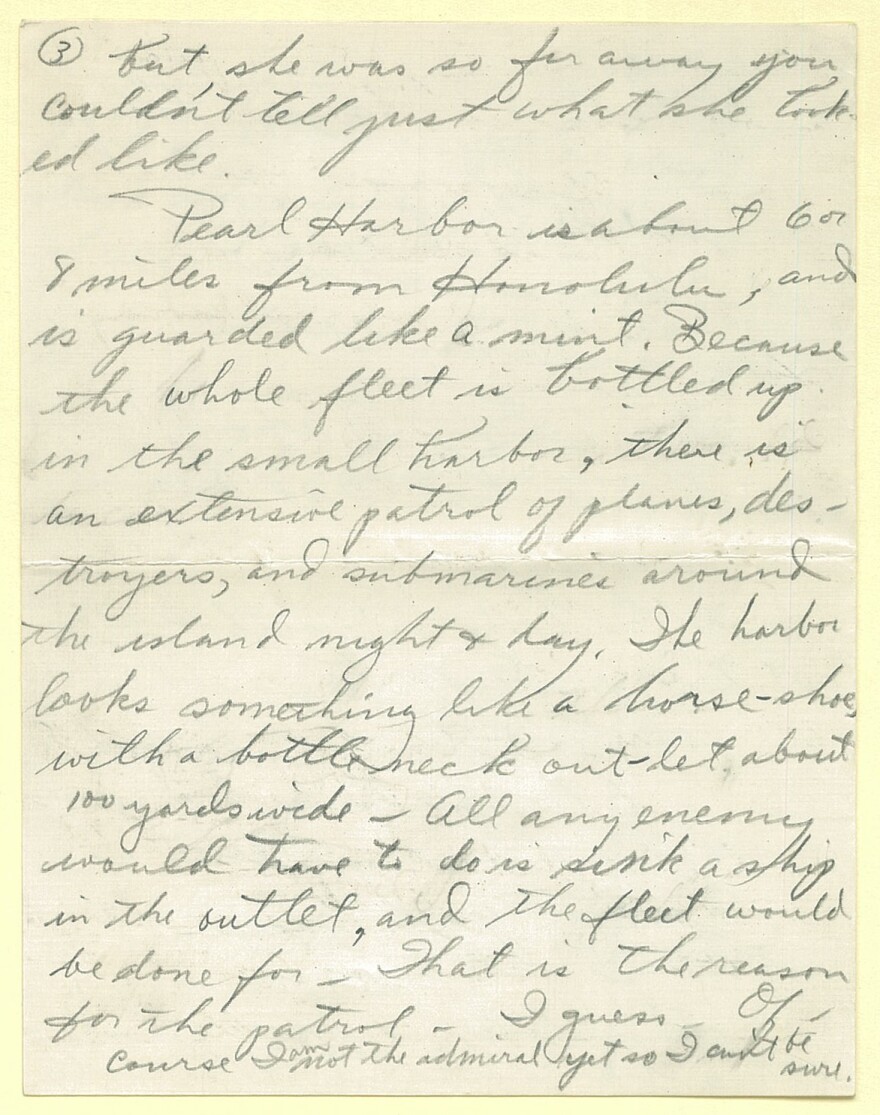 ③ But, she was so far away you
couldn't tell just what she look-
ed like.
Pearl Harbor is about 6 or
8 miles from Honolulu, and
is guarded like a mint. Because
the whole fleet is bottled up
in the small harbor, there is
an extensive patrol of planes, des-
troyers, and submarines around
the island night & day. The harbor
looks something like a horse-shoe,
with a bottle neck out-let, about
100 yards wide – All any enemy
would have to do is sink a ship
in the outlet, and the fleet would
be done for – That is the reason
for the patrol – I guess – Of –
course I am not the admiral yet so I can't be
sure.